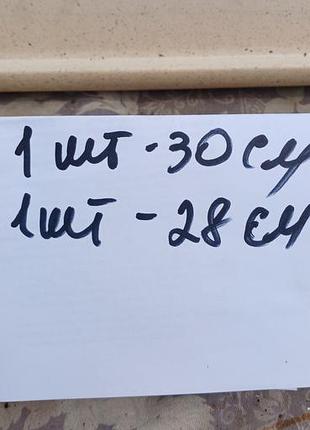 1 шт - 30 см
1 шт - 28 см